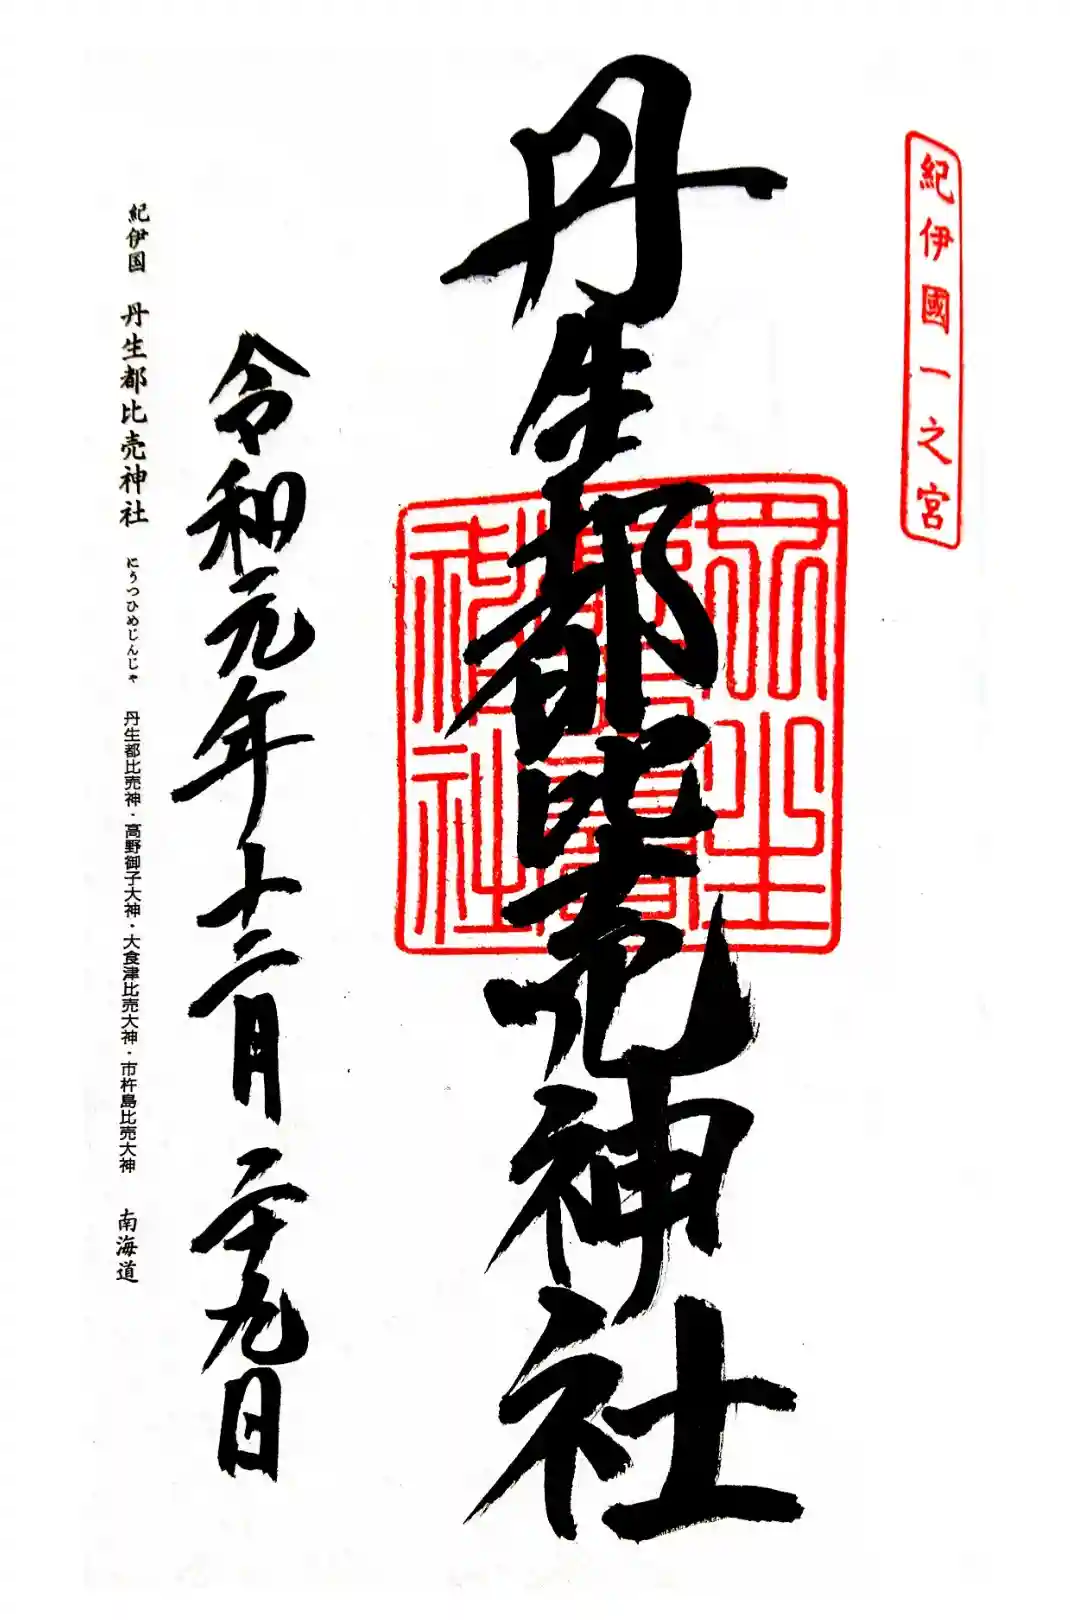 紀伊國一之宮
丹生都比売神社
令和元年十二月二十九日
紀伊国 丹生都比売神社 にうつひめじんじゃ 丹生都比売神・高野御子大神・大食津比売大神・市杵島比売大神 南海道